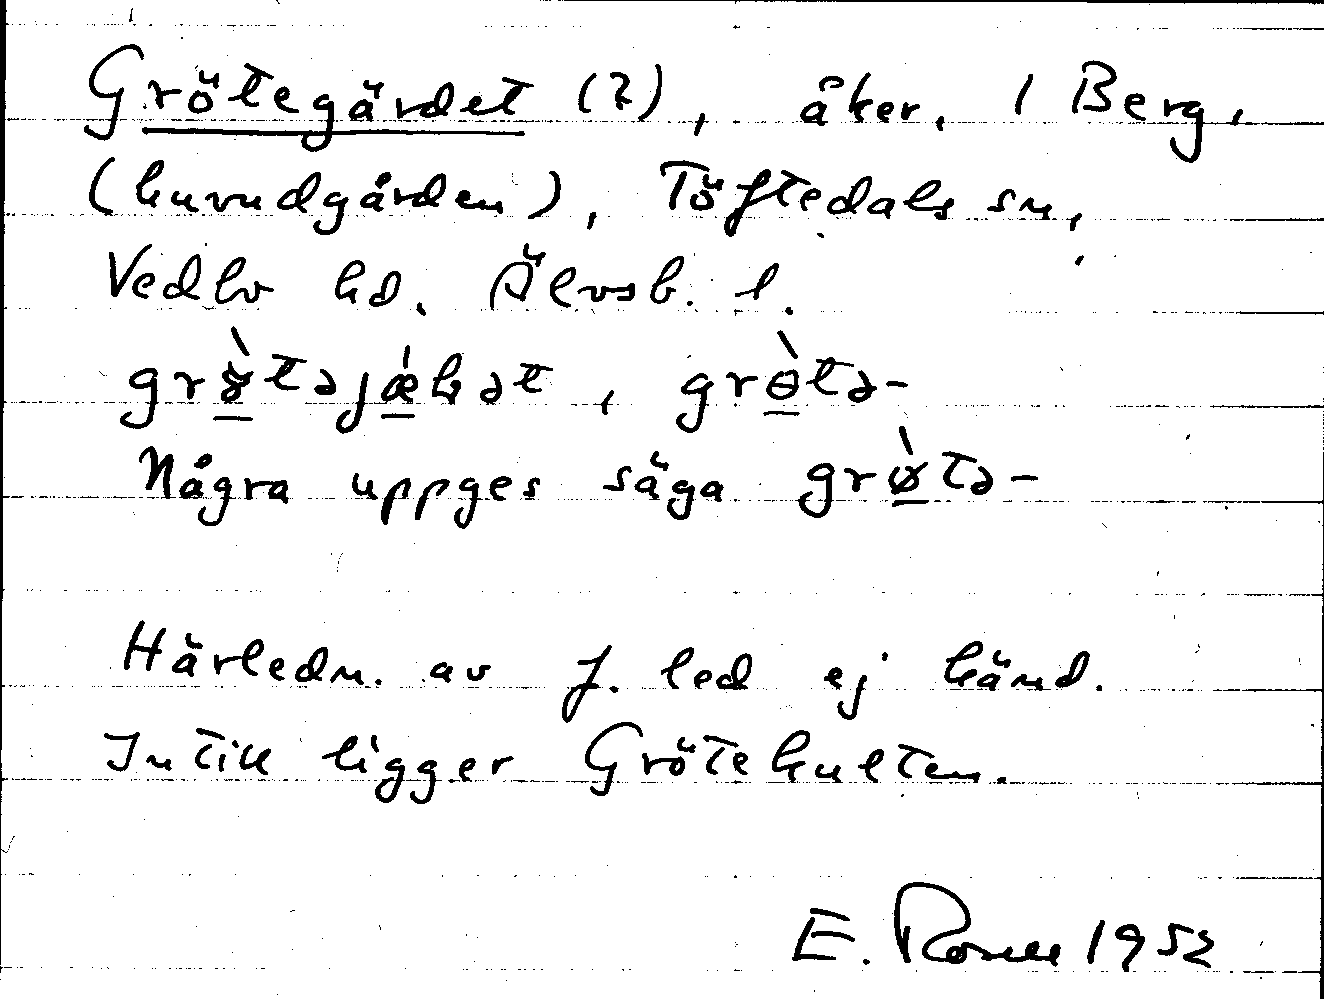 Grötegärdet (?), åker, 1 Berg,
(huvudgården), Töftedals sn,
Vedbo hd. Älvsb. l.
Några uppges säga grø̀tə-
Härledn. av f. led ej känd.
Intill ligger Grötekulten.
E. Rosell 1952